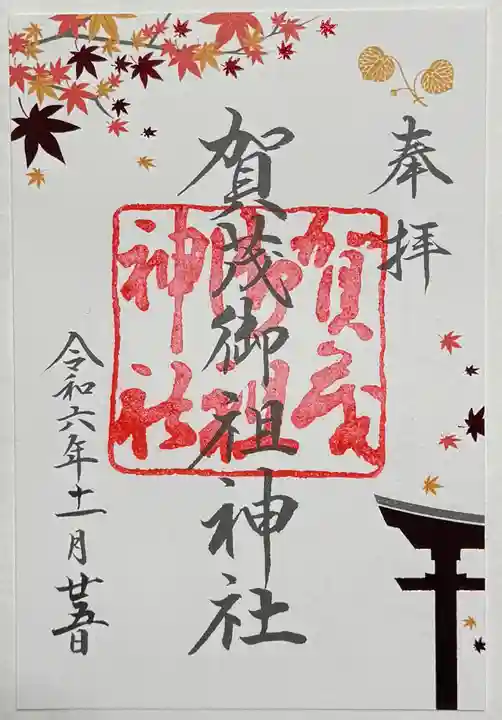 奉拝
賀茂御祖神社
賀茂
御祖
神社
令和六年十一月廿五日